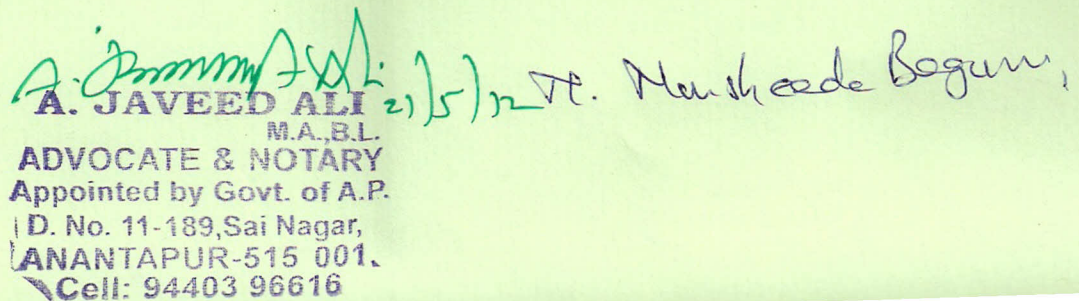 A. Javeed Ali 21/5/12 Begum,
A. JAVEED ALI
M.A.,B.L.
ADVOCATE & NOTARY
Appointed by Govt. of A.P.
D. No. 11-189,Sai Nagar,
ANANTAPUR-515 001.
Cell: 94403 96616